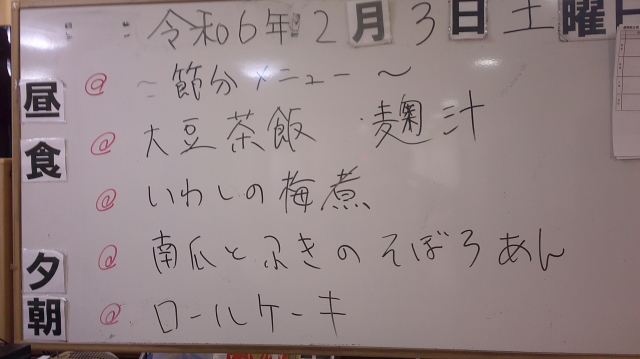 令和6年2月3日土曜日
昼食
@ ~節分メニュー~
@ 大豆茶飯・麹汁
@ いわしの梅煮
@ 南瓜とふきのそぼろあん
夕朝
@ ロールケーキ